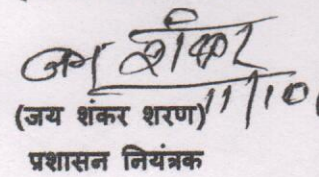 जय शंकर
11/10
(जय शंकर शरण)
प्रशासन नियंत्रक